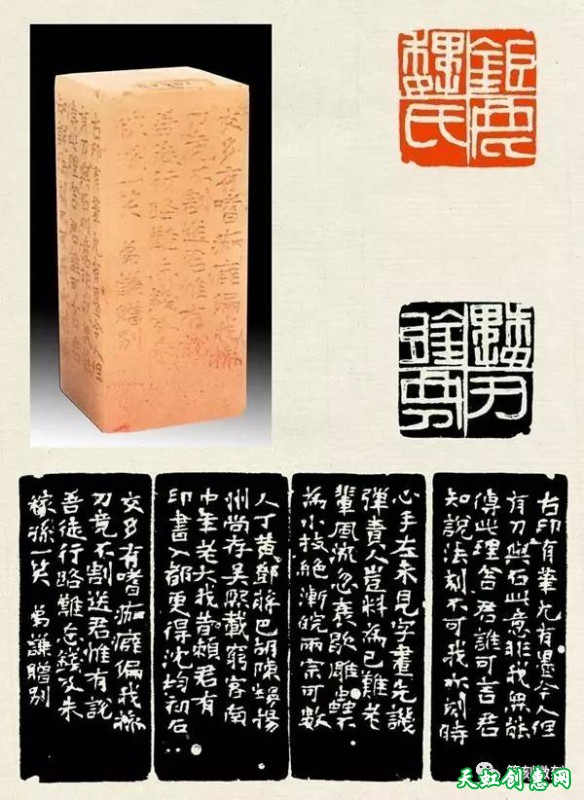 鉅鹿
魏氏
古印有筆尤有墨今人但
有刀與石此意非我無能
傳此理答君誰可言君
知說法刻不可我亦刻時
心手左未見字畫先譏
彈貴人豈料為己難老
輩風流忽衰歇雕蟲不
為小技絕浙皖兩宗可數
人丁黃鄧蔣巴胡陳曼揚
州尚存吳熙載窮客南
中年老大我昔賴君有
印書入都更得沈均初石
交多有嗜痂癖偏我操
刀竟不割送君惟有說
吾徒行路難忘錢及朱
稼孫一笑 弟謙贈別
天虹创惠网